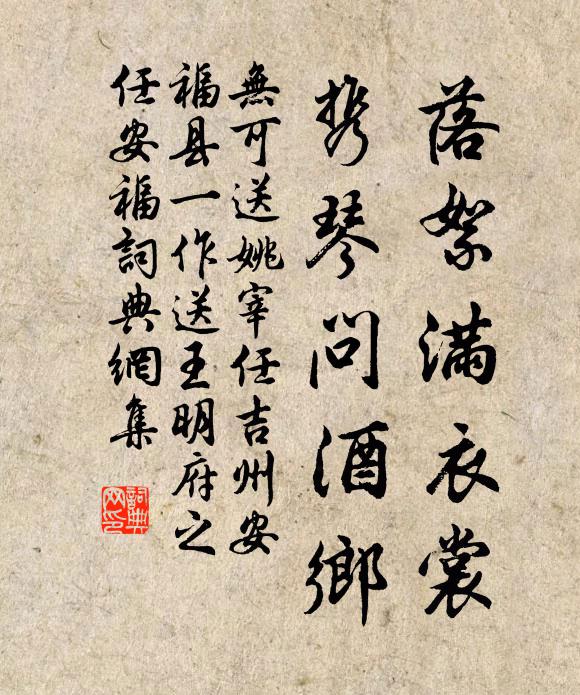 落絮满衣裳
携琴問酒鄉
無可送姚宰任吉州安
福县一作送王明府之
任安福詞典網集
詞典网印